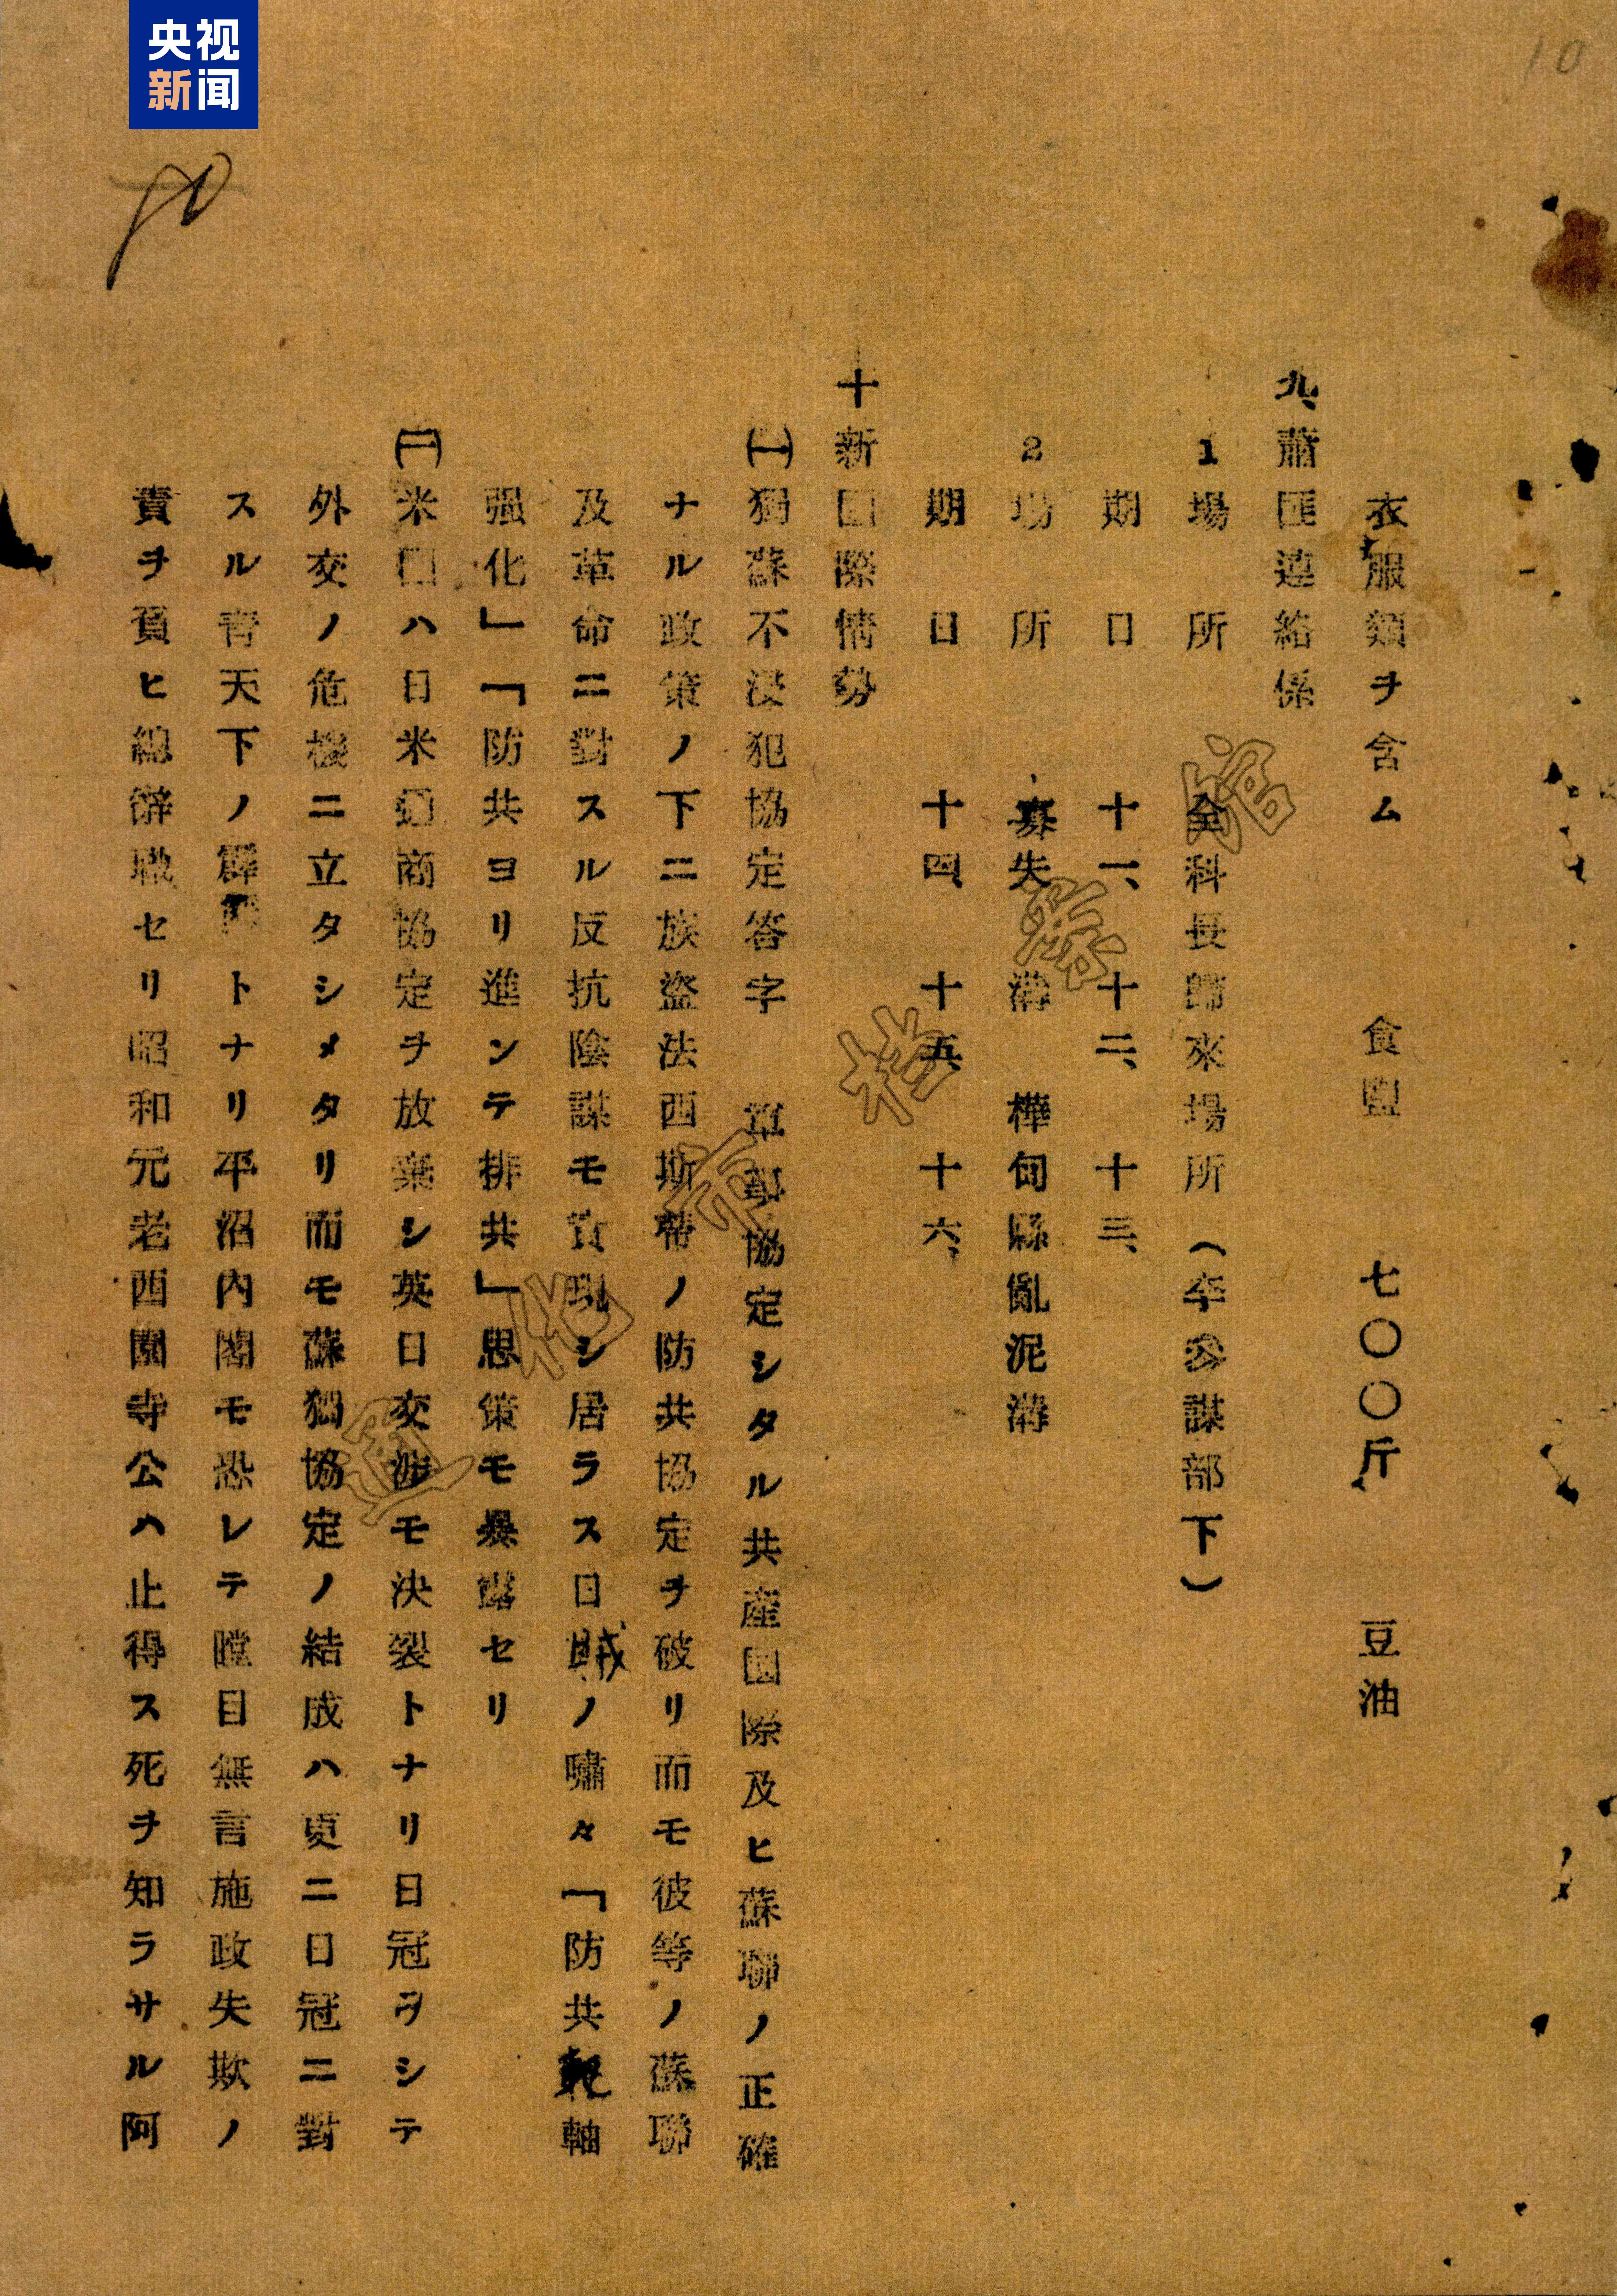 央视
新闻
10
衣服類ヲ含ム 食塩 七〇〇斤 豆油
九、蕭匪連絡係
1 場所 全科長歸來場所（李參謀部下）
期日 十一、十二、十三、
2 場所 寡失溝 樺甸縣亂泥溝
期日 十四、十五、十六、
十 新国際情勢
㈠ 獨蘇不浸犯協定答字 軍事協定シタル共産国際及ヒ蘇聯ノ正確
ナル政策ノ下ニ族盗法西斯帶ノ防共協定ヲ破リ而モ彼等ノ蘇聯
及革命ニ對スル反抗陰謀モ實現シ居ラス日賊ノ嘯々「防共軸
强化」「防共ヨリ進ンテ排共」思策モ暴露セリ
㈡ 米国ハ日米通商協定ヲ放棄シ英日交渉モ決裂トナリ日冠ヲシテ
外交ノ危機ニ立タシメタリ而モ蘇獨協定ノ結成ハ更ニ日冠ニ對
スル青天下ノ霹靂トナリ平沼内閣モ恐レテ瞠目無言施政失欺ノ
責ヲ負ヒ總辭職セリ昭和元老西園寺公ハ止得ス死ヲ知ラサル阿